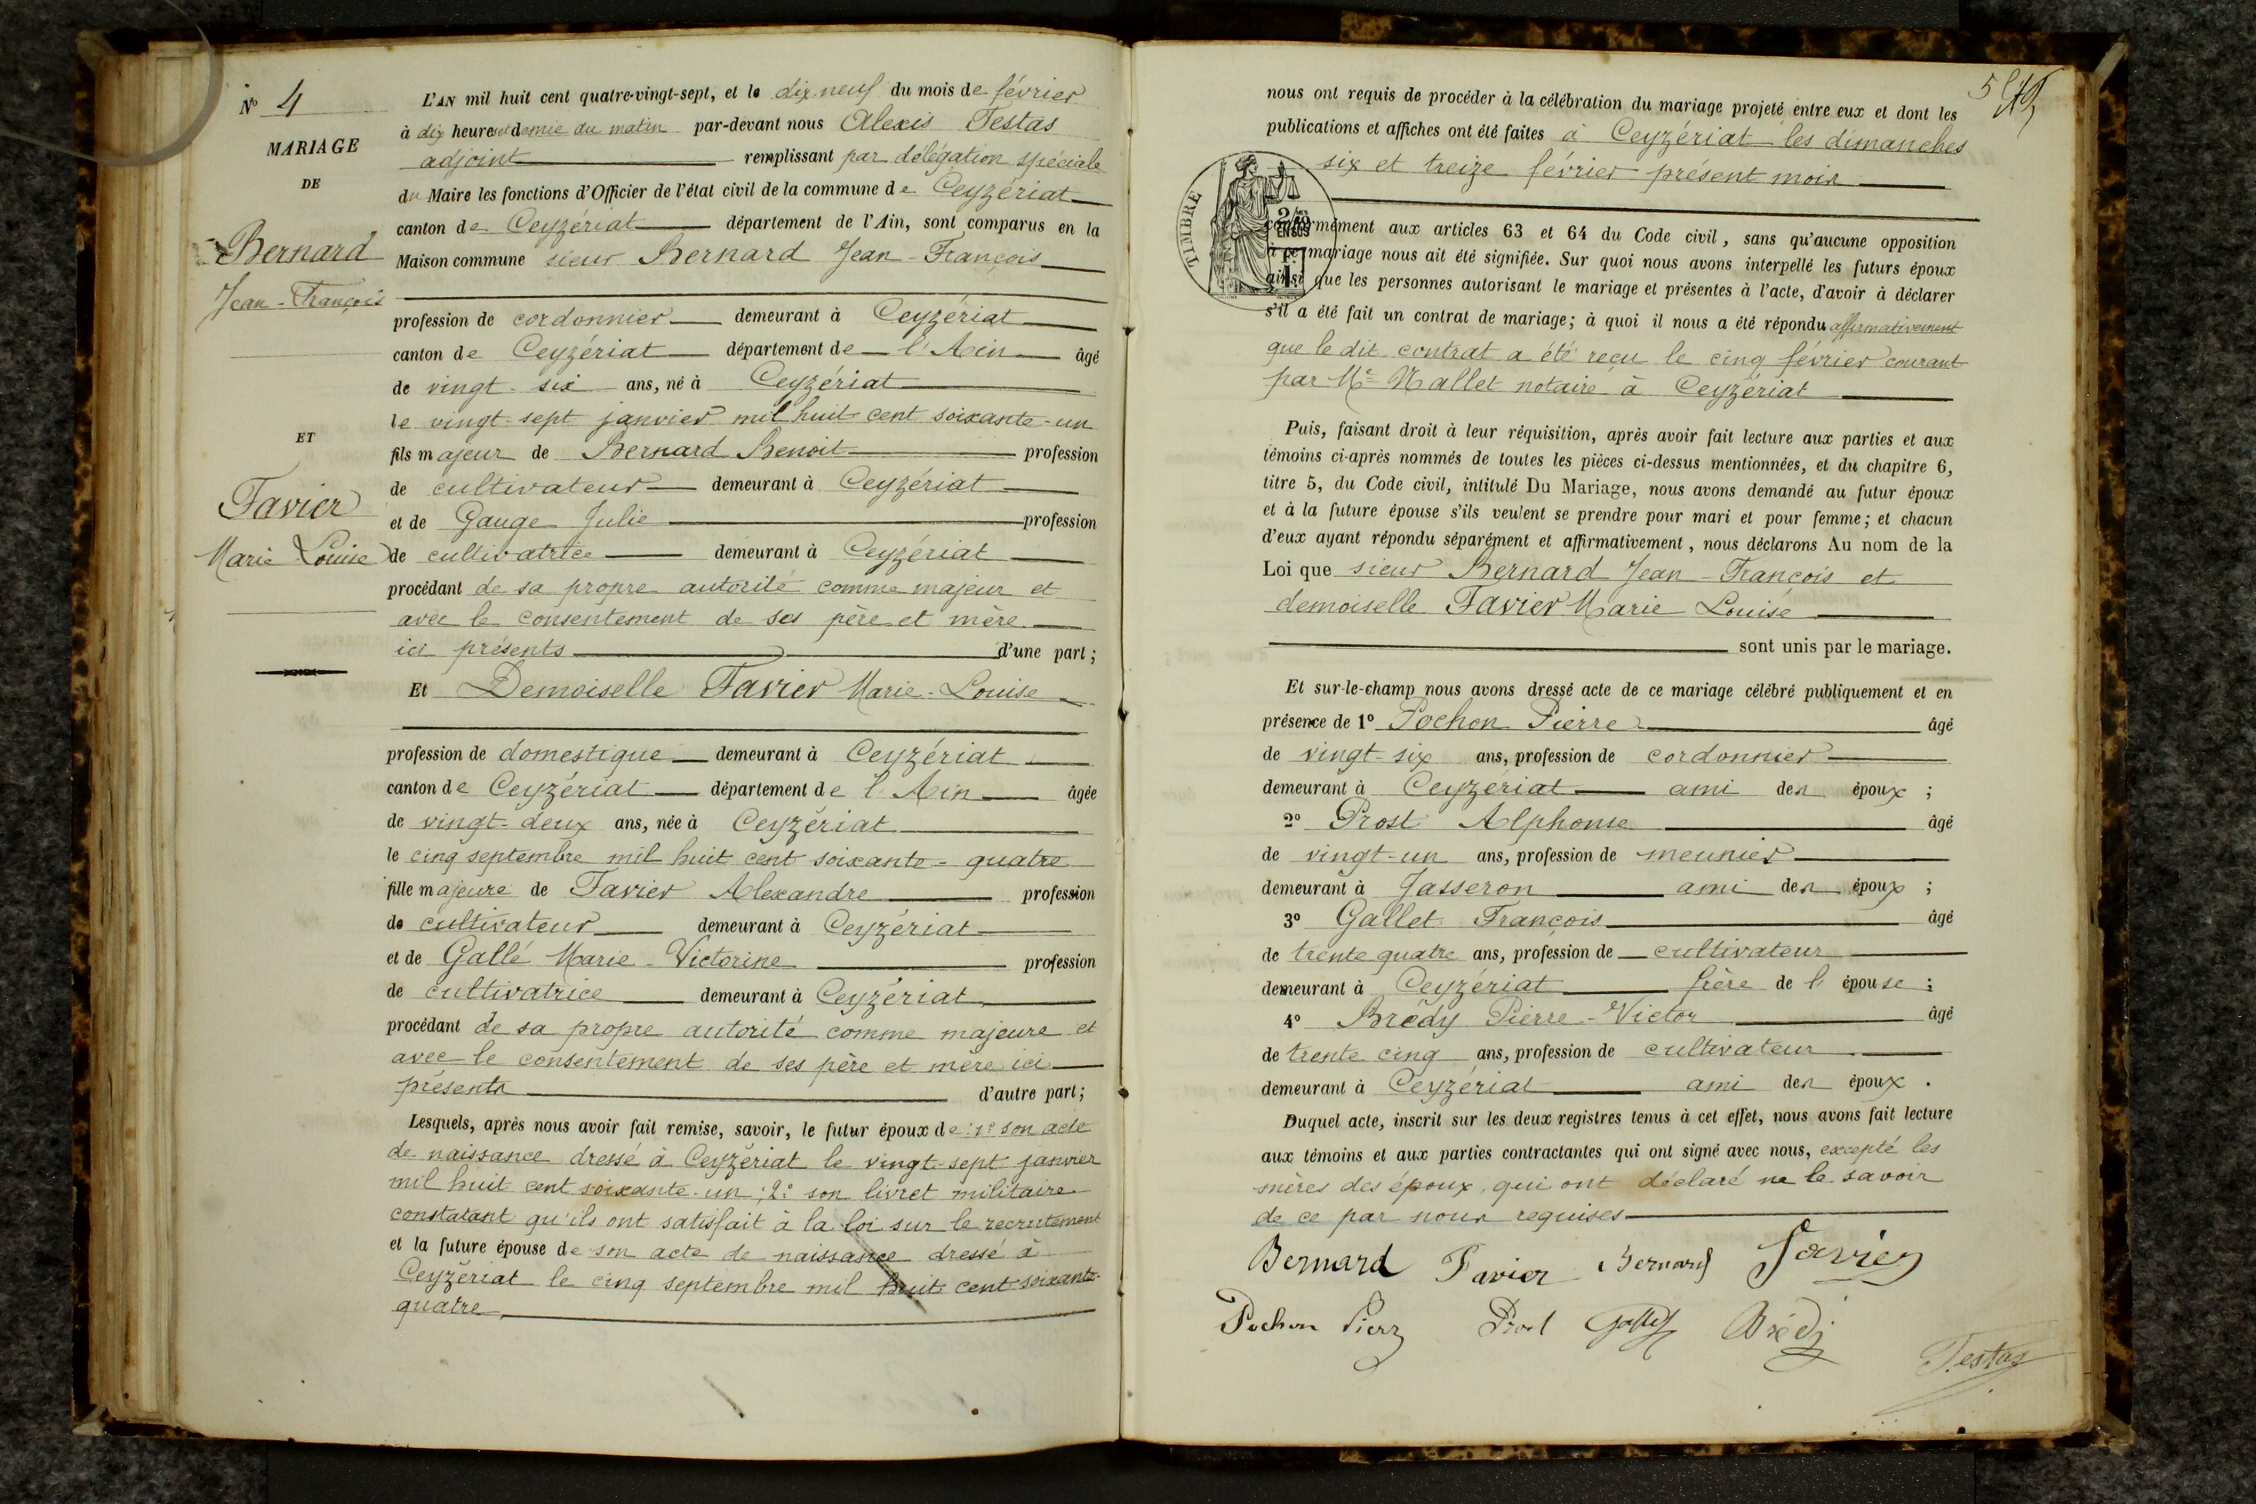 N° 4
MARIAGE
DE
Bernard
Jean-François
ET
Favier
Marie Louise
L'AN mil huit cent quatre-vingt-sept, et le dix-neuf du mois de février
à dix heures et demie du matin par-devant nous Alexis Testas
adjoint remplissant par délégation spéciale
du Maire les fonctions d'Officier de l'état civil de la commune de Ceyzériat
canton de Ceyzériat département de l'Ain, sont comparus en la
Maison commune sieur Bernard Jean-François
profession de cordonnier demeurant à Ceyzériat
canton de Ceyzériat département de l'Ain âgé
de vingt-six ans, né à Ceyzériat
le vingt-sept janvier mil huit cent soixante-un
fils majeur de Bernard Benoit profession
de cultivateur demeurant à Ceyzériat
et de Gauge Julie profession
de cultivatrice demeurant à Ceyzériat
procédant de sa propre autorité comme majeur et
avec le consentement de ses père et mère
ici présents d'une part;
Et Demoiselle Favier Marie-Louise
profession de domestique demeurant à Ceyzériat
canton de Ceyzériat département de l'Ain âgée
de vingt-deux ans, née à Ceyzériat
le cinq septembre mil huit cent soixante-quatre
fille majeure de Favier Alexandre profession
de cultivateur demeurant à Ceyzériat
et de Gallé Marie-Victorine profession
de cultivatrice demeurant à Ceyzériat
procédant de sa propre autorité comme majeure et
avec le consentement de ses père et mère ici
présents d'autre part;
Lesquels, après nous avoir fait remise, savoir, le futur époux de: 1° son acte
de naissance dressé à Ceyzériat le vingt-sept janvier
mil huit cent soixante-un; 2° son livret militaire
constatant qu'ils ont satisfait à la loi sur le recrutement
et la future épouse de son acte de naissance dressé à
Ceyzériat le cinq septembre mil huit cent soixante-
quatre
5
nous ont requis de procéder à la célébration du mariage projeté entre eux et dont les
publications et affiches ont été faites à Ceyzériat les dimanches
six et treize février présent mois
TIMBRE
conformément aux articles 63 et 64 du Code civil, sans qu'aucune opposition
à ce mariage nous ait été signifiée. Sur quoi nous avons interpellé les futurs époux
ainsi que les personnes autorisant le mariage et présentes à l'acte, d'avoir à déclarer
s'il a été fait un contrat de mariage; à quoi il nous a été répondu affirmativement
que le dit contrat a été reçu le cinq février courant
par Me Mallet notaire à Ceyzériat
Puis, faisant droit à leur réquisition, après avoir fait lecture aux parties et aux
témoins ci-après nommés de toutes les pièces ci-dessus mentionnées, et du chapitre 6,
titre 5, du Code civil, intitulé Du Mariage, nous avons demandé au futur époux
et à la future épouse s'ils veulent se prendre pour mari et pour femme; et chacun
d'eux ayant répondu séparément et affirmativement, nous déclarons Au nom de la
Loi que sieur Bernard Jean-François et
demoiselle Favier Marie Louise
sont unis par le mariage.
Et sur-le-champ nous avons dressé acte de ce mariage célébré publiquement et en
présence de 1° Pochon Pierre âgé
de vingt-six ans, profession de cordonnier
demeurant à Ceyzériat ami des époux;
2° Prost Alphonse âgé
de vingt-un ans, profession de meunier
demeurant à Jasseron ami des époux;
3° Gallet François âgé
de trente quatre ans, profession de cultivateur
demeurant à Ceyzériat frère de l'épouse;
4° Brédy Pierre-Victor âgé
de trente cinq ans, profession de cultivateur
demeurant à Ceyzériat ami des époux.
Duquel acte, inscrit sur les deux registres tenus à cet effet, nous avons fait lecture
aux témoins et aux parties contractantes qui ont signé avec nous, excepté les
mères des époux, qui ont déclaré ne le savoir
de ce par nous requises
Bernard Favier Bernard Favier
Pochon Pierre Prost Gallet Brédy
Testas